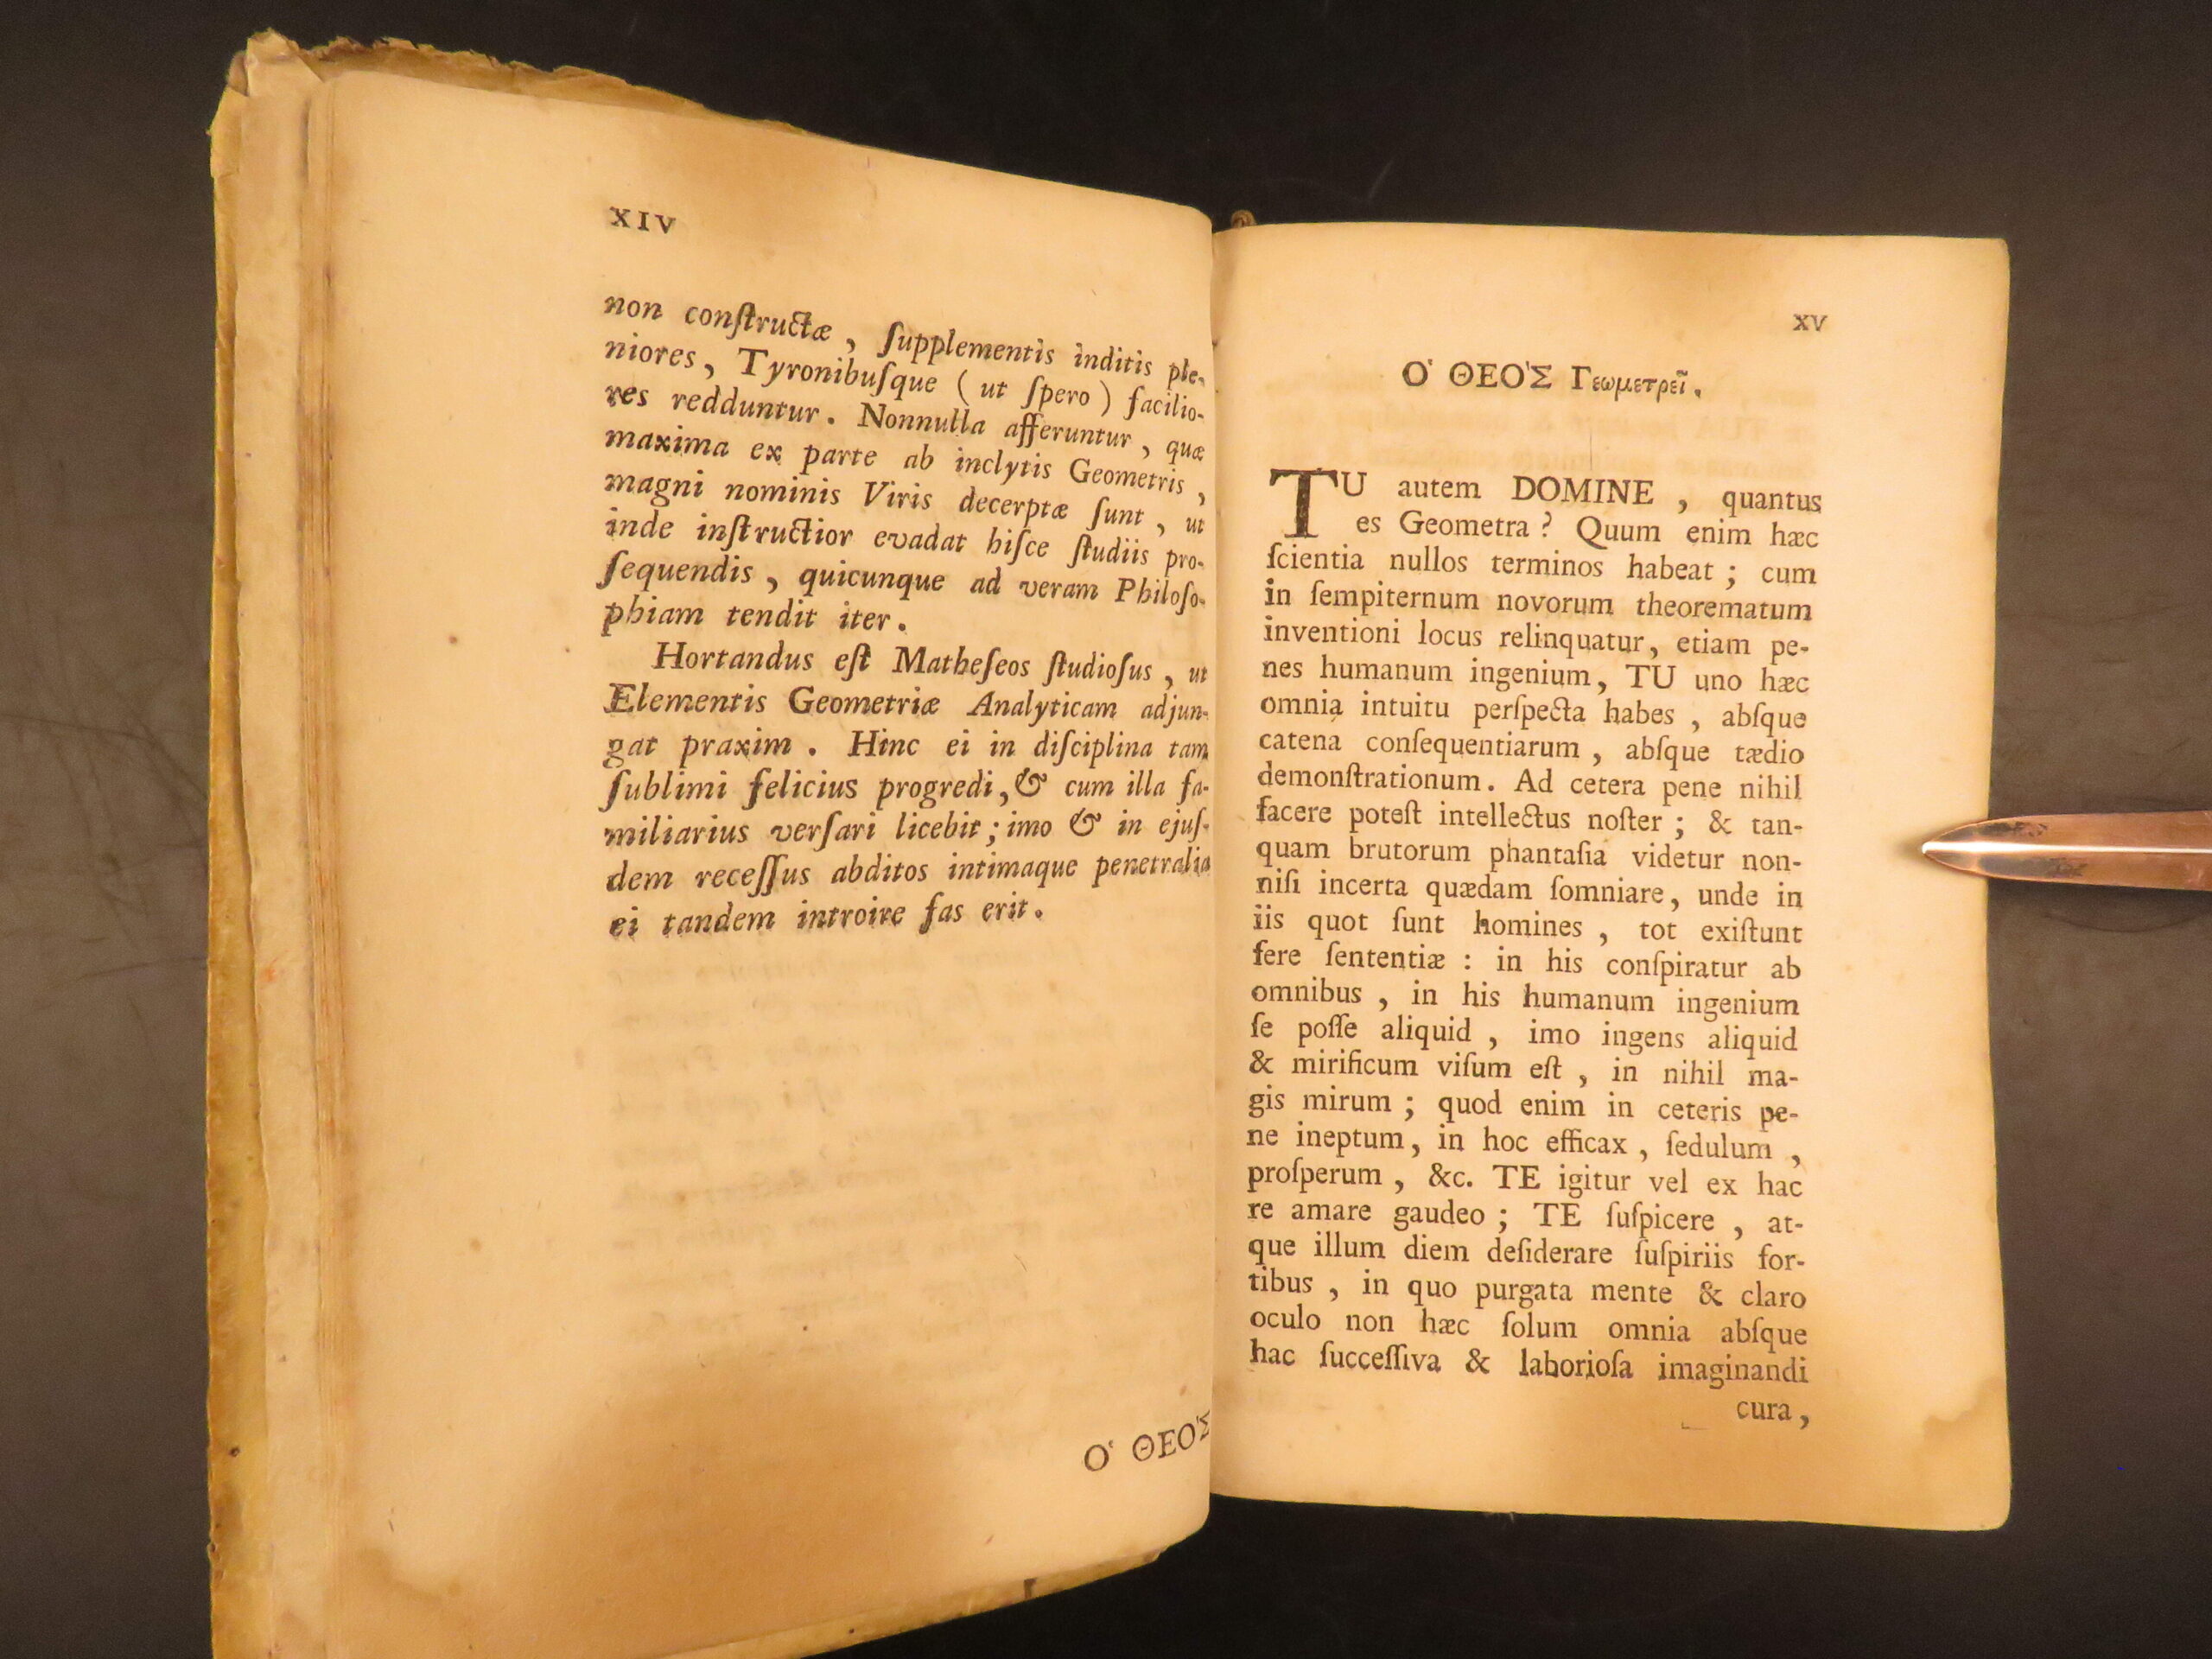 XIV
non conſtructæ , ſupplementis inditis ple-
niores, Tyronibuſque ( ut ſpero ) facilio-
res redduntur. Nonnulla afferuntur , quæ
maxima ex parte ab inclytis Geometris ,
magni nominis Viris decerptæ ſunt , ut
inde inſtructior evadat hiſce ſtudiis pro-
ſequendis , quicunque ad veram Philoſo-
phiam tendit iter.
Hortandus eſt Matheſeos ſtudioſus , ut
Elementis Geometriæ Analyticam adjun-
gat praxim . Hinc ei in diſciplina tam
ſublimi felicius progredi, & cum illa fa-
miliarius verſari licebit ; imo & in ejuſ-
dem receſſus abditos intimaque penetralia
ei tandem introire fas erit.
Ο῾ ΘΕΟ'Σ
XV
Ο῾ ΘΕΟ'Σ Γεωμετρεῖ.
TU autem DOMINE , quantus
es Geometra ? Quum enim hæc
ſcientia nullos terminos habeat ; cum
in ſempiternum novorum theorematum
inventioni locus relinquatur, etiam pe-
nes humanum ingenium, TU uno hæc
omnia intuitu perſpecta habes , abſque
catena conſequentiarum , abſque tædio
demonſtrationum. Ad cetera pene nihil
facere poteſt intellectus noſter ; & tan-
quam brutorum phantaſia videtur non-
niſi incerta quædam ſomniare, unde in
iis quot ſunt homines , tot exiſtunt
fere ſententiæ : in his conſpiratur ab
omnibus , in his humanum ingenium
ſe poſſe aliquid , imo ingens aliquid
& mirificum viſum eſt , in nihil ma-
gis mirum ; quod enim in ceteris pe-
ne ineptum, in hoc efficax , ſedulum ,
proſperum , &c. TE igitur vel ex hac
re amare gaudeo ; TE ſuſpicere , at-
que illum diem deſiderare ſuſpiriis for-
tibus , in quo purgata mente & claro
oculo non hæc ſolum omnia abſque
hac ſucceſſiva & laborioſa imaginandi
cura ,